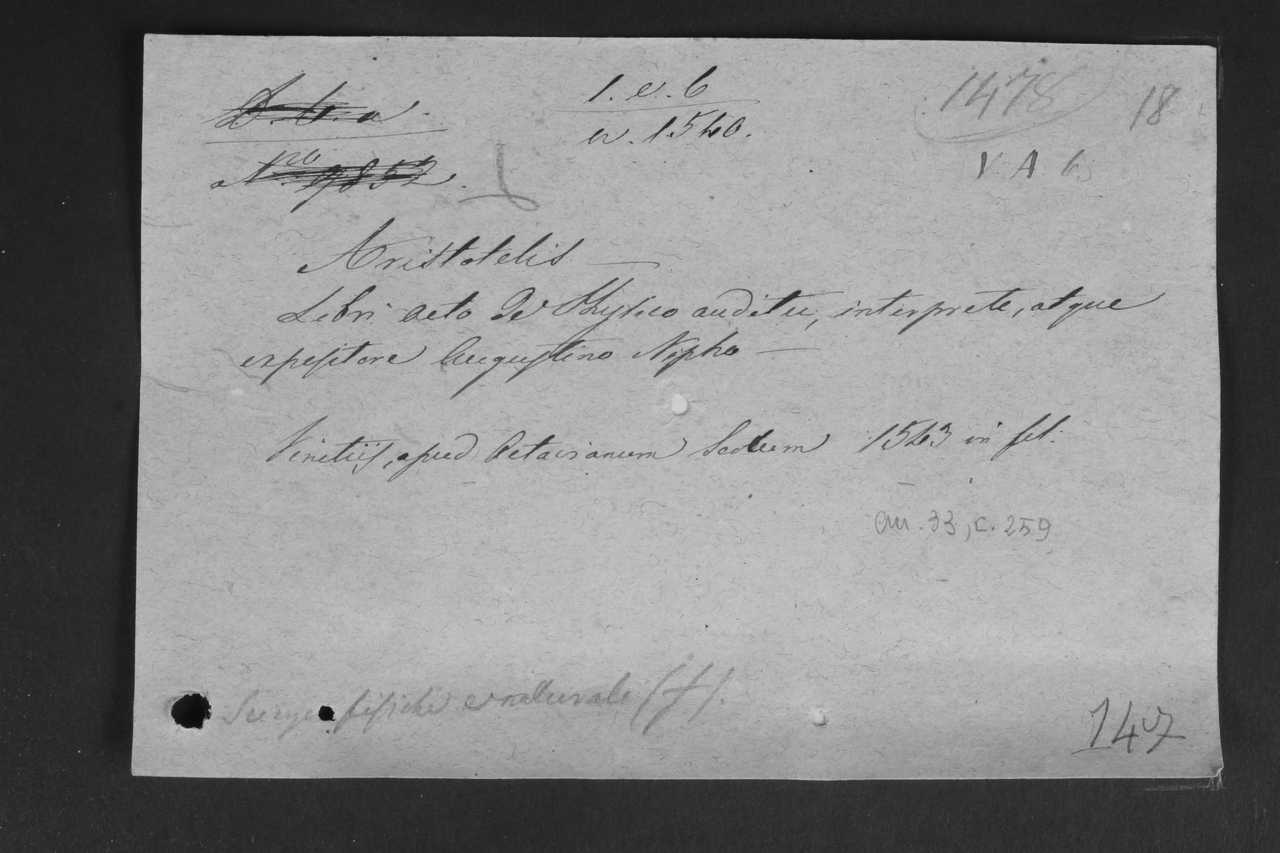 D. 6. a.
1. e. 6
1478
18
N.ro 9852.
n. 1540.
V A 6
Aristotelis —
Libri octo De Physico auditu, interprete, atque
expositore Augustino Nypho —
Venetiis, apud Octavianum Scotum 1543 in fol.
an. 33, c. 259
Scienze fisiche e naturali (f).
147